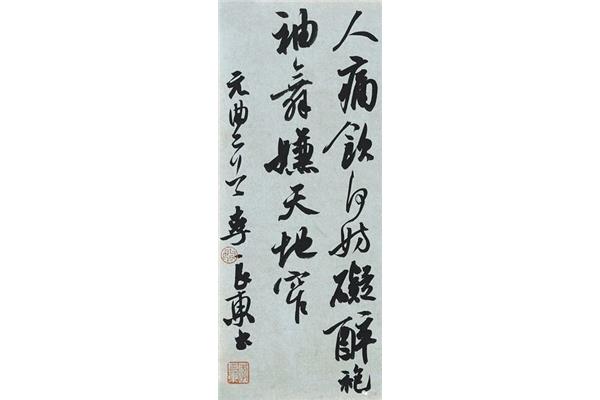 人痛飲何妨礙醉袍
袖舞嫌天地窄
元曲二 李長東书